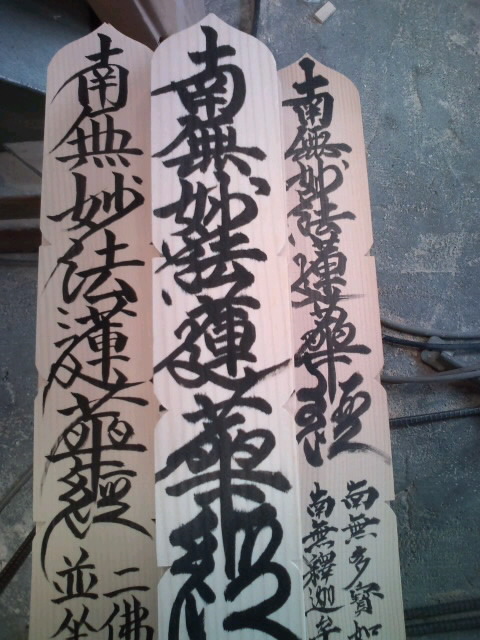 南無妙法蓮華經
二佛
並坐
南無妙法蓮華經
南無妙法蓮華經
南無多寶如
南無釋迦牟